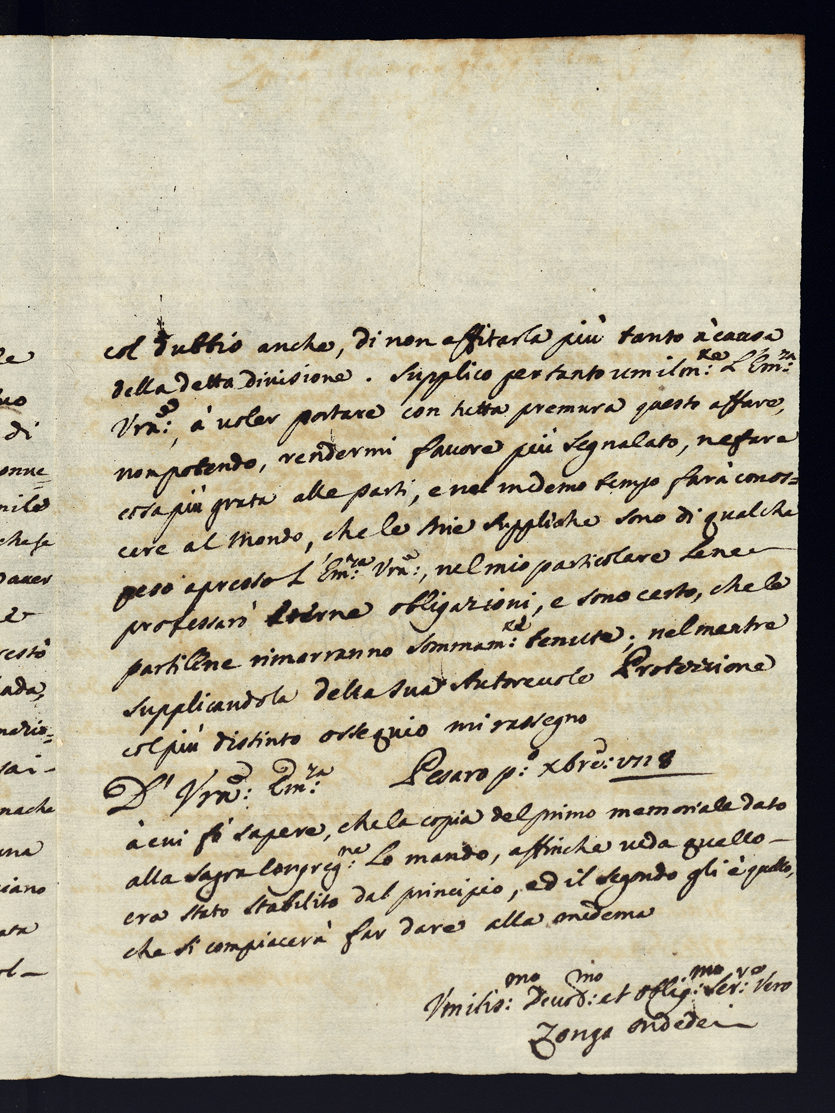 col dubbio anche, di non affitarla più tanto à causa
della detta divisione. Supplico per tanto umilm:te L'Em:za
Vrã:, à voler portare con tutta premura questo affare,
non potendo, rendermi favore più segnalato, ne fare
cosa più grata alle parti, e nel medemo tempo farà conos=
cere al Mondo, che le Mie Suppliche sono di qualche
peso apresso L'Em:za Vrã:, nel mio particolare Lene
professarò eterne obligazioni, e sono certo, che le
parti Line rimarranno sommam:te tenute; nel mentre
supplicandola della sua Autoreuole Protezzione
col più distinto ossequio mi rassegno
D' Vrã: Em:za Pesaro p:o xbre:
à cui fò sapere, che la copia del primo memoriale dato
alla Sagra Congreg:ne Lo mando, affinche ueda quello
era stato stabilito dal principio, ed il segondo gli è quello,
che si compiacerà far dare alla medema
Vmilis:mo Deuot:mo et oblig:mo Ser:re Vero
Zongo Ondedei
le
uo
di
onue=
mile
che se
Dauer
e
resto
ada,
nazio=
sai-
nache
una
ciano
ata
ol-